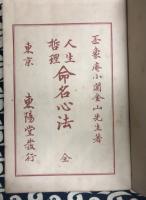 玉象庵小蘭金山先生著
人生
哲理 命名心法 全
東京 東陽堂發行